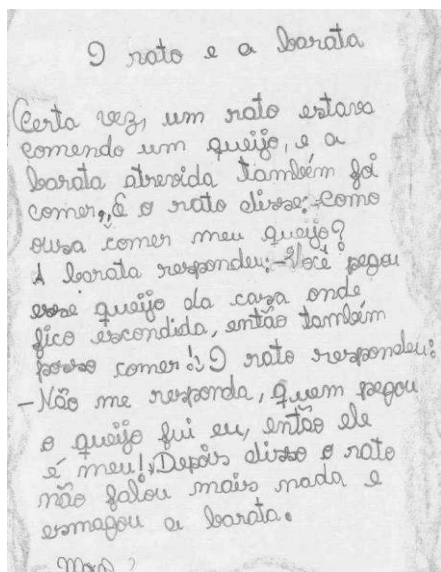 O rato e a barata
Certa vez, um rato estava
comendo um queijo, e a
barata atrevida também foi
comer, E o rato disse: -Como
ousa comer meu queijo?
A barata respondeu: -Você pegou
esse queijo da casa onde
fico escondida, então também
posso comer! O rato respondeu:
-Não me responda, quem pegou
o queijo fui eu, então ele
é meu! Depois disso o rato
não falou mais nada e
esmagou a barata.